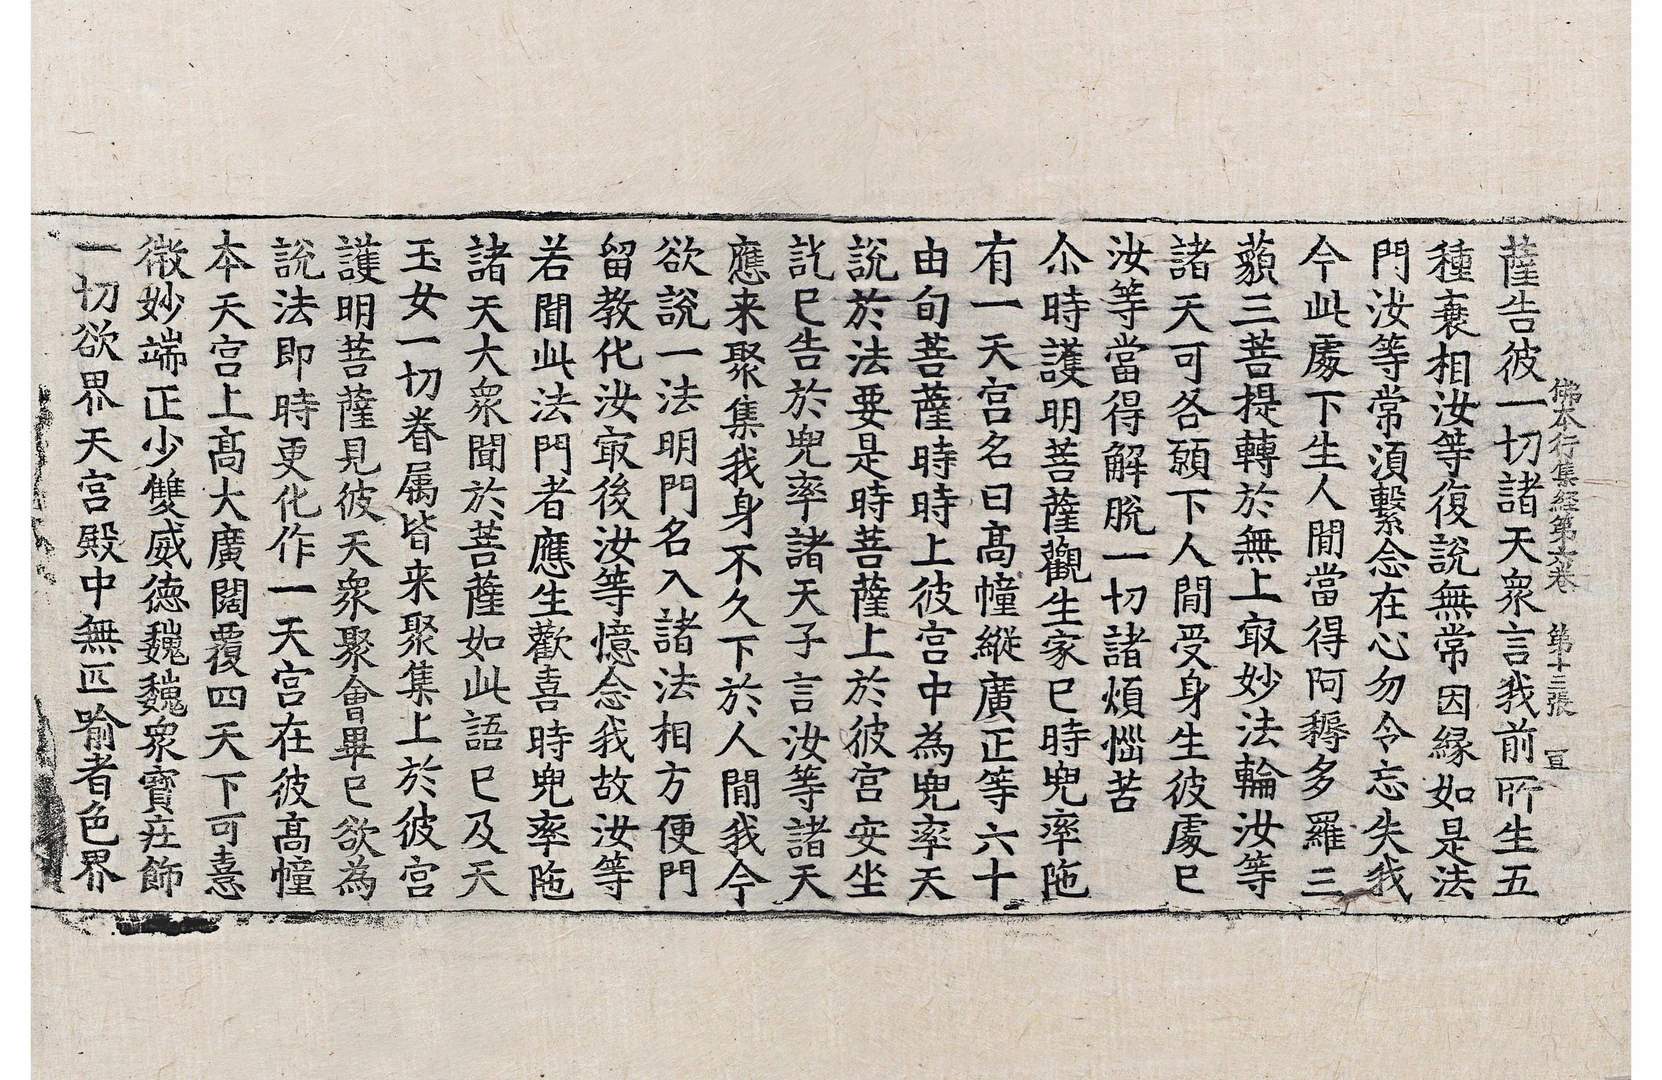 佛本行集經第六卷 第十三張 亘
薩告彼一切諸天衆言我前所生五
種衰相汝等復說無常因縁如是法
門汝等常湏繫念在心勿令忘失我
今此處下生人閒當得阿耨多羅三
藐三菩提轉於無上㝡妙法輪汝等
諸天可各願下人閒受身生彼處已
汝等當得解脫一切諸煩惱苦
尒時護明菩薩觀生家已時兜率陁
有一天宮名曰髙幢縱廣正等六十
由旬菩薩時時上彼宮中為兜率天
說於法要是時菩薩上於彼宮安坐
訖已告於兜率諸天子言汝等諸天
應来聚集我身不久下於人閒我今
欲說一法明門名入諸法相方便門
留教化汝㝡後汝等憶念我故汝等
若聞此法門者應生歡喜時兜率陁
諸天大衆聞於菩薩如此語已及天
玉女一切眷属皆来聚集上於彼宮
護明菩薩見彼天衆聚會畢已欲為
說法即時更化作一天宮在彼髙幢
本天宮上髙大廣闊覆四天下可憙
微妙端正少雙威德巍巍衆寶㽵飾
一切欲界天宮殿中無匹喻者色界